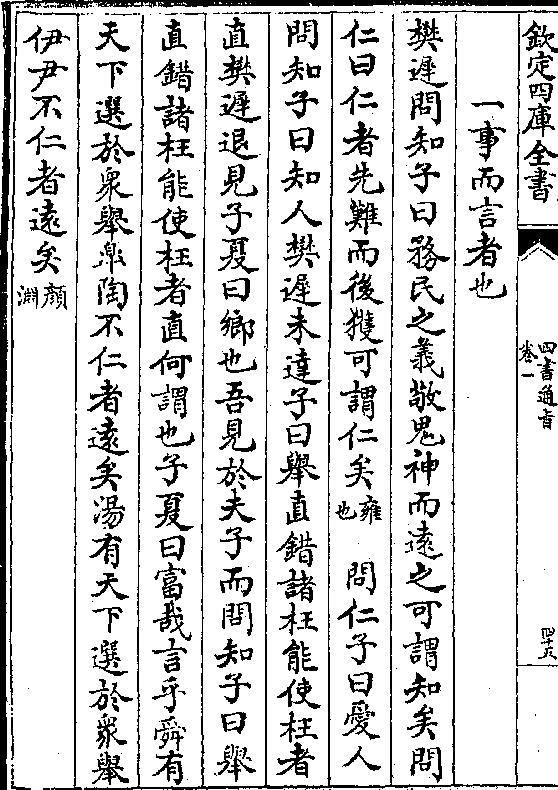 欽定四庫全書
四書通旨
卷一
四十五
一事而言者也
樊遲問知子曰務民之義敬鬼神而遠之可謂知矣問
仁曰仁者先難而後獲可謂仁矣雍也 問仁子曰愛人
問知子曰知人樊遲未達子曰舉直錯諸枉能使枉者
直樊遲退見子夏曰鄉也吾見於夫子而問知子曰舉
直錯諸枉能使枉者直何謂也子夏曰富哉言乎舜有
天下選於衆舉臯陶不仁者遠矣湯有天下選於衆舉
伊尹不仁者遠矣顏淵